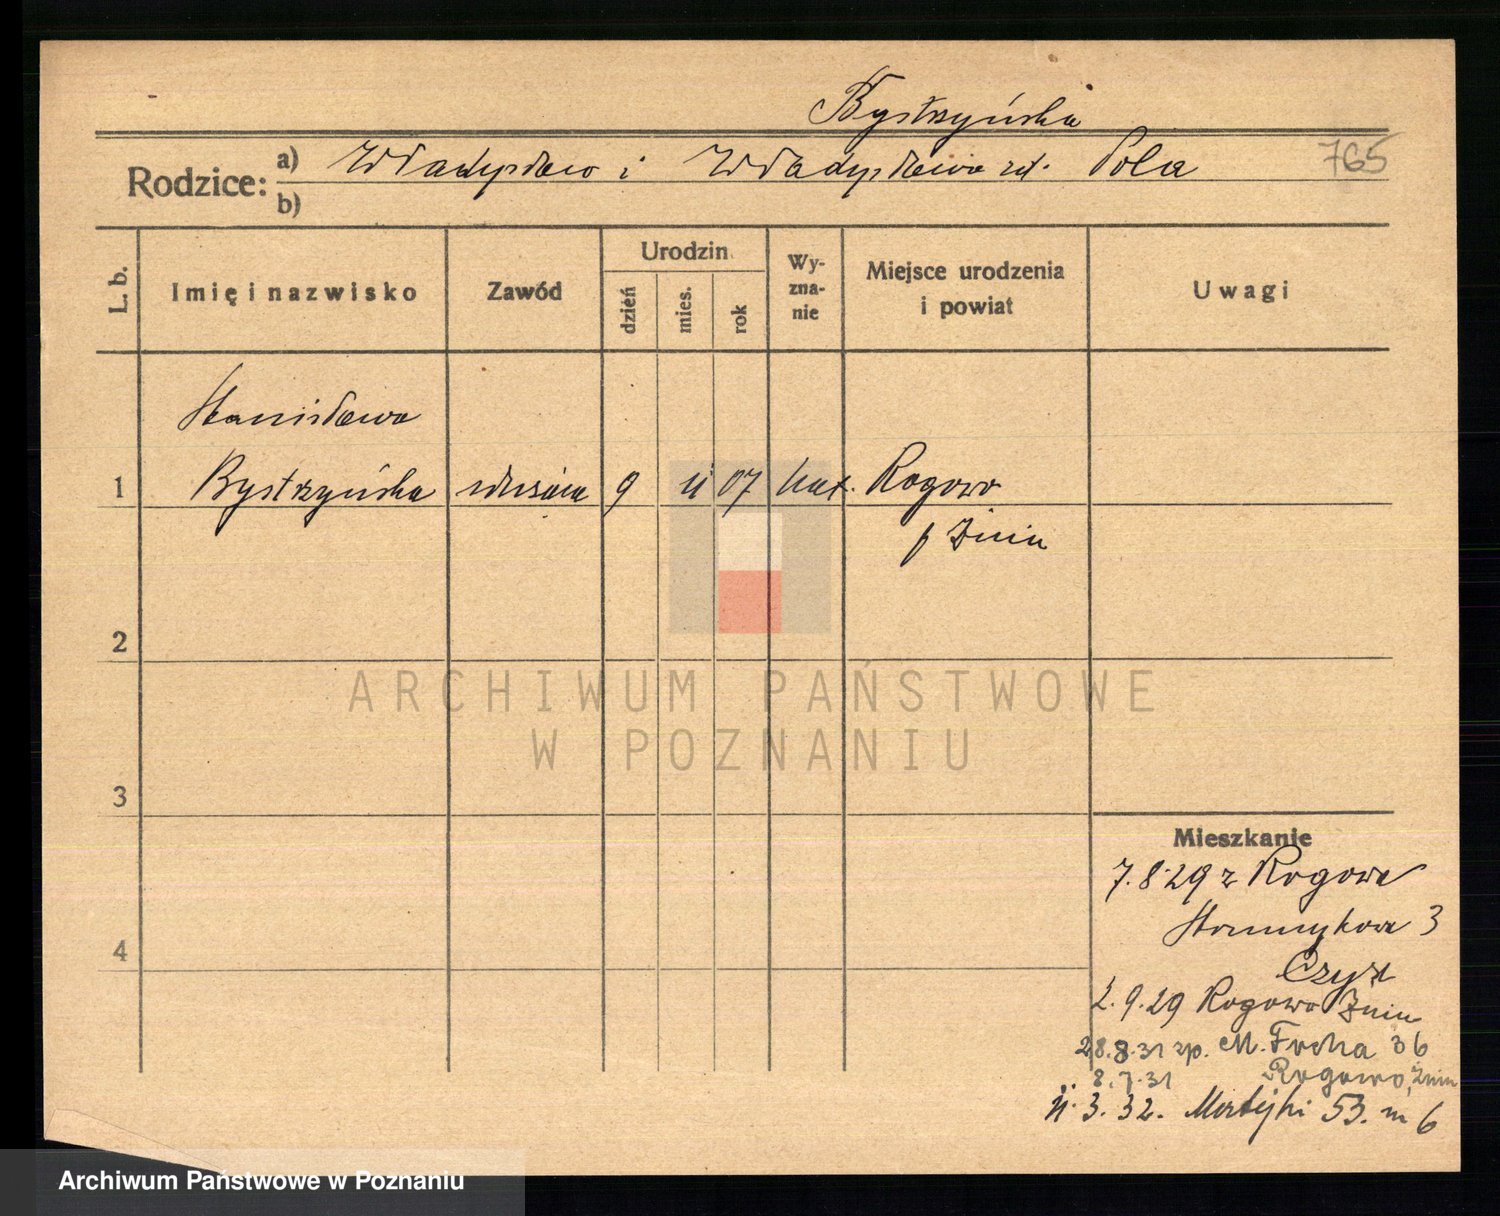 Bystrzyńska
Rodzice: a) Władysław i Władysława zd. Pola
765
b)
L. b.
Imię i nazwisko
Zawód
Urodzin
dzień
mies.
rok
Wy-
zna-
nie
Miejsce urodzenia
i powiat
Uwagi
Stanisława
1 Bystrzyńska 9 11 07 kat. Rogowo
p Żnin
2
ARCHIWUM PAŃSTWOWE
W POZNANIU
3
4
Mieszkanie
7.8.29 z Rogowa
3
Czysz
2.9.29 Rogowo Żnin
28.8.31 M. Focha 36
8.7.31 Rogowo, Żnin
11.3.32. Matejki 53. m 6
Archiwum Państwowe w Poznaniu